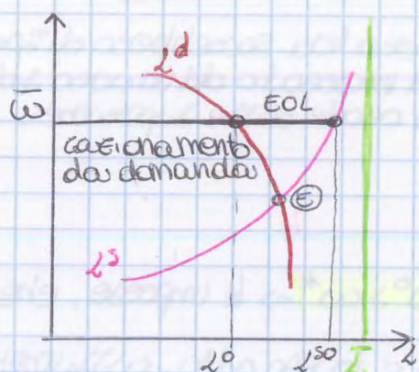 L^d
w̄
EOL
razionamento
da domanda
E
L^s
L^0
L^s0
L̄
L